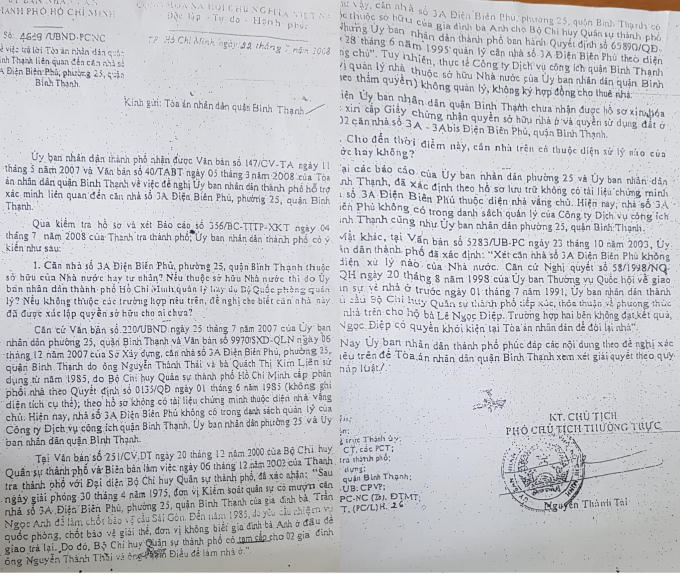 THÀNH PHỐ HỒ CHÍ MINH
CỘNG HOÀ XÃ HỘI CHỦ NGHĨA VIỆT NA
Độc lập - Tự do - Hạnh phúc
Số: 4639 /UBND-PCNC
TP. Hồ Chí Minh, ngày 22 tháng 7 năm 2008
Về việc trả lời Tòa án nhân dân quận
Bình Thạnh liên quan đến căn nhà số
3A Điện Biên Phủ, phường 25, quận
Bình Thạnh.
Kính gửi: Tòa án nhân dân quận Bình Thạnh
Ủy ban nhân dân thành phố nhận được Văn bản số 147/CV-TA ngày 11
tháng 5 năm 2007 và Văn bản số 40/TABT ngày 05 tháng 3 năm 2008 của Tòa
án nhân dân quận Bình Thạnh về việc đề nghị Ủy ban nhân dân thành phố hỗ trợ
xác minh liên quan đến căn nhà số 3A Điện Biên Phủ, phường 25, quận Bình
Thạnh.
Qua kiểm tra hồ sơ và xét Báo cáo số 356/BC-TTTP-XKT ngày 04
tháng 7 năm 2008 của Thanh tra thành phố, Ủy ban nhân dân thành phố có ý
kiến như sau:
1. Căn nhà số 3A Điện Biên Phủ, phường 25, quận Bình Thạnh thuộc
sở hữu của Nhà nước hay tư nhân? Nếu thuộc sở hữu Nhà nước thì do Ủy
ban nhân dân thành phố Hồ Chí Minh quản lý hay do Bộ Quốc phòng quản
lý? Nếu không thuộc các trường hợp nêu trên, đề nghị cho biết căn nhà này
đã được xác lập quyền sở hữu cho ai chưa?
Căn cứ Văn bản số 220/UBND ngày 25 tháng 7 năm 2007 của Ủy ban
nhân dân phường 25, quận Bình Thạnh và Văn bản số 9970/SXD-QLN ngày 06
tháng 12 năm 2007 của Sở Xây dựng, căn nhà số 3A Điện Biên Phủ, phường 25,
quận Bình Thạnh do ông Nguyễn Thành Thái và bà Quách Thị Kim Liên sử
dụng từ năm 1985, do Bộ Chỉ huy Quân sự thành phố Hồ Chí Minh cấp phân
phối nhà theo Quyết định số 0135/QĐ ngày 01 tháng 6 năm 1985 (không ghi
diện tích cụ thể); theo hồ sơ không có tài liệu chứng minh thuộc diện nhà vắng
chủ. Hiện nay, nhà số 3A Điện Biên Phủ không có trong danh sách quản lý của
Công ty Dịch vụ công ích quận Bình Thạnh, Ủy ban nhân dân phường 25 và Ủy
ban nhân dân quận Bình Thạnh.
Tại Văn bản số 251/CV.DT ngày 20 tháng 12 năm 2000 của Bộ Chỉ huy
Quân sự thành phố và Biên bản làm việc ngày 06 tháng 12 năm 2002 của Thanh
tra thành phố với Đại diện Bộ Chỉ huy Quân sự thành phố, đã xác nhận: "Sau
ngày giải phóng 30 tháng 4 năm 1975, đơn vị Kiểm soát quân sự có mượn căn
nhà số 3A Điện Biên Phủ, phường 25, quận Bình Thạnh của gia đình bà Trần
Ngọc Anh để làm chốt bảo vệ cầu Sài Gòn. Đến năm 1985, do yêu cầu nhiệm vụ
quốc phòng, chốt bảo vệ giải thể, đơn vị không biết gia đình bà Anh ở đâu để
giao trả lại. Do đó, Bộ Chỉ huy Quân sự thành phố có tạm cấp cho 02 gia đình
ông Nguyễn Thành Thái và ông Điều để làm nhà ở."
vậy, căn nhà số 3A Điện Biên Phủ, phường 25, quận Bình Thạnh có
thuộc sở hữu của gia đình bà Anh cho Bộ Chỉ huy Quân sự thành phố
Nhưng Ủy ban nhân dân thành phố ban hành Quyết định số 65890/QĐ-
28 tháng 6 năm 1995 quản lý căn nhà số 3A Điện Biên Phủ theo diện
chủ". Tuy nhiên, thực tế Công ty Dịch vụ công ích quận Bình Thạnh
vị quản lý nhà thuộc sở hữu Nhà nước của Ủy ban nhân dân quận Bình
theo thẩm quyền) không quản lý, không ký hợp đồng cho thuê nhà.
Ủy ban nhân dân quận Bình Thạnh chưa nhận được hồ sơ xin hóa
xin cấp Giấy chứng nhận quyền sở hữu nhà ở và quyền sử dụng đất ở
02 căn nhà số 3A - 3Abis Điện Biên Phủ, quận Bình Thạnh.
. Cho đến thời điểm này, căn nhà trên có thuộc diện xử lý nào của
nước hay không?
Tại các báo cáo của Ủy ban nhân dân phường 25 và Ủy ban nhân dân
Bình Thạnh, đã xác định theo hồ sơ lưu trữ không có tài liệu chứng minh
số 3A Điện Biên Phủ thuộc diện nhà vắng chủ. Hiện nay, nhà số 3A
Biên Phủ không có trong danh sách quản lý của Công ty Dịch vụ công ích
Bình Thạnh cũng như Ủy ban nhân dân phường 25, quận Bình Thạnh.
Mặt khác, tại Văn bản số 5283/UB-PC ngày 23 tháng 10 năm 2003, Ủy
ban nhân dân thành phố đã xác định: "Xét căn nhà số 3A Điện Biên Phủ không
diện xử lý nào của Nhà nước. Căn cứ Nghị quyết số 58/1998/NQ-
QH ngày 20 tháng 8 năm 1998 của Ủy ban Thường vụ Quốc hội về giao
dân sự về nhà ở trước ngày 01 tháng 7 năm 1991, Ủy ban nhân dân thành
yêu cầu Bộ Chỉ huy Quân sự thành phố tiếp xúc, thỏa thuận về phương thức
nhà trên cho hộ bà Lê Ngọc Diệp. Trường hợp hai bên không đạt kết quả,
Ngọc Diệp có quyền khởi kiện tại Tòa án nhân dân để đòi lại nhà".
Nay Ủy ban nhân dân thành phố phúc đáp các nội dung theo đề nghị xác
nêu trên để Tòa án nhân dân quận Bình Thạnh xem xét giải quyết theo quy
pháp luật./.
KT. CHỦ TỊCH
PHÓ CHỦ TỊCH THƯỜNG TRỰC
trực Thành ủy;
CT, các PCT;
tra thành phố;
dựng;
quận Bình Thạnh;
UB: CPVP;
PC-NC (2b), ĐTMT;
T. (PC/L) H. 26
Nguyễn Thành Tài